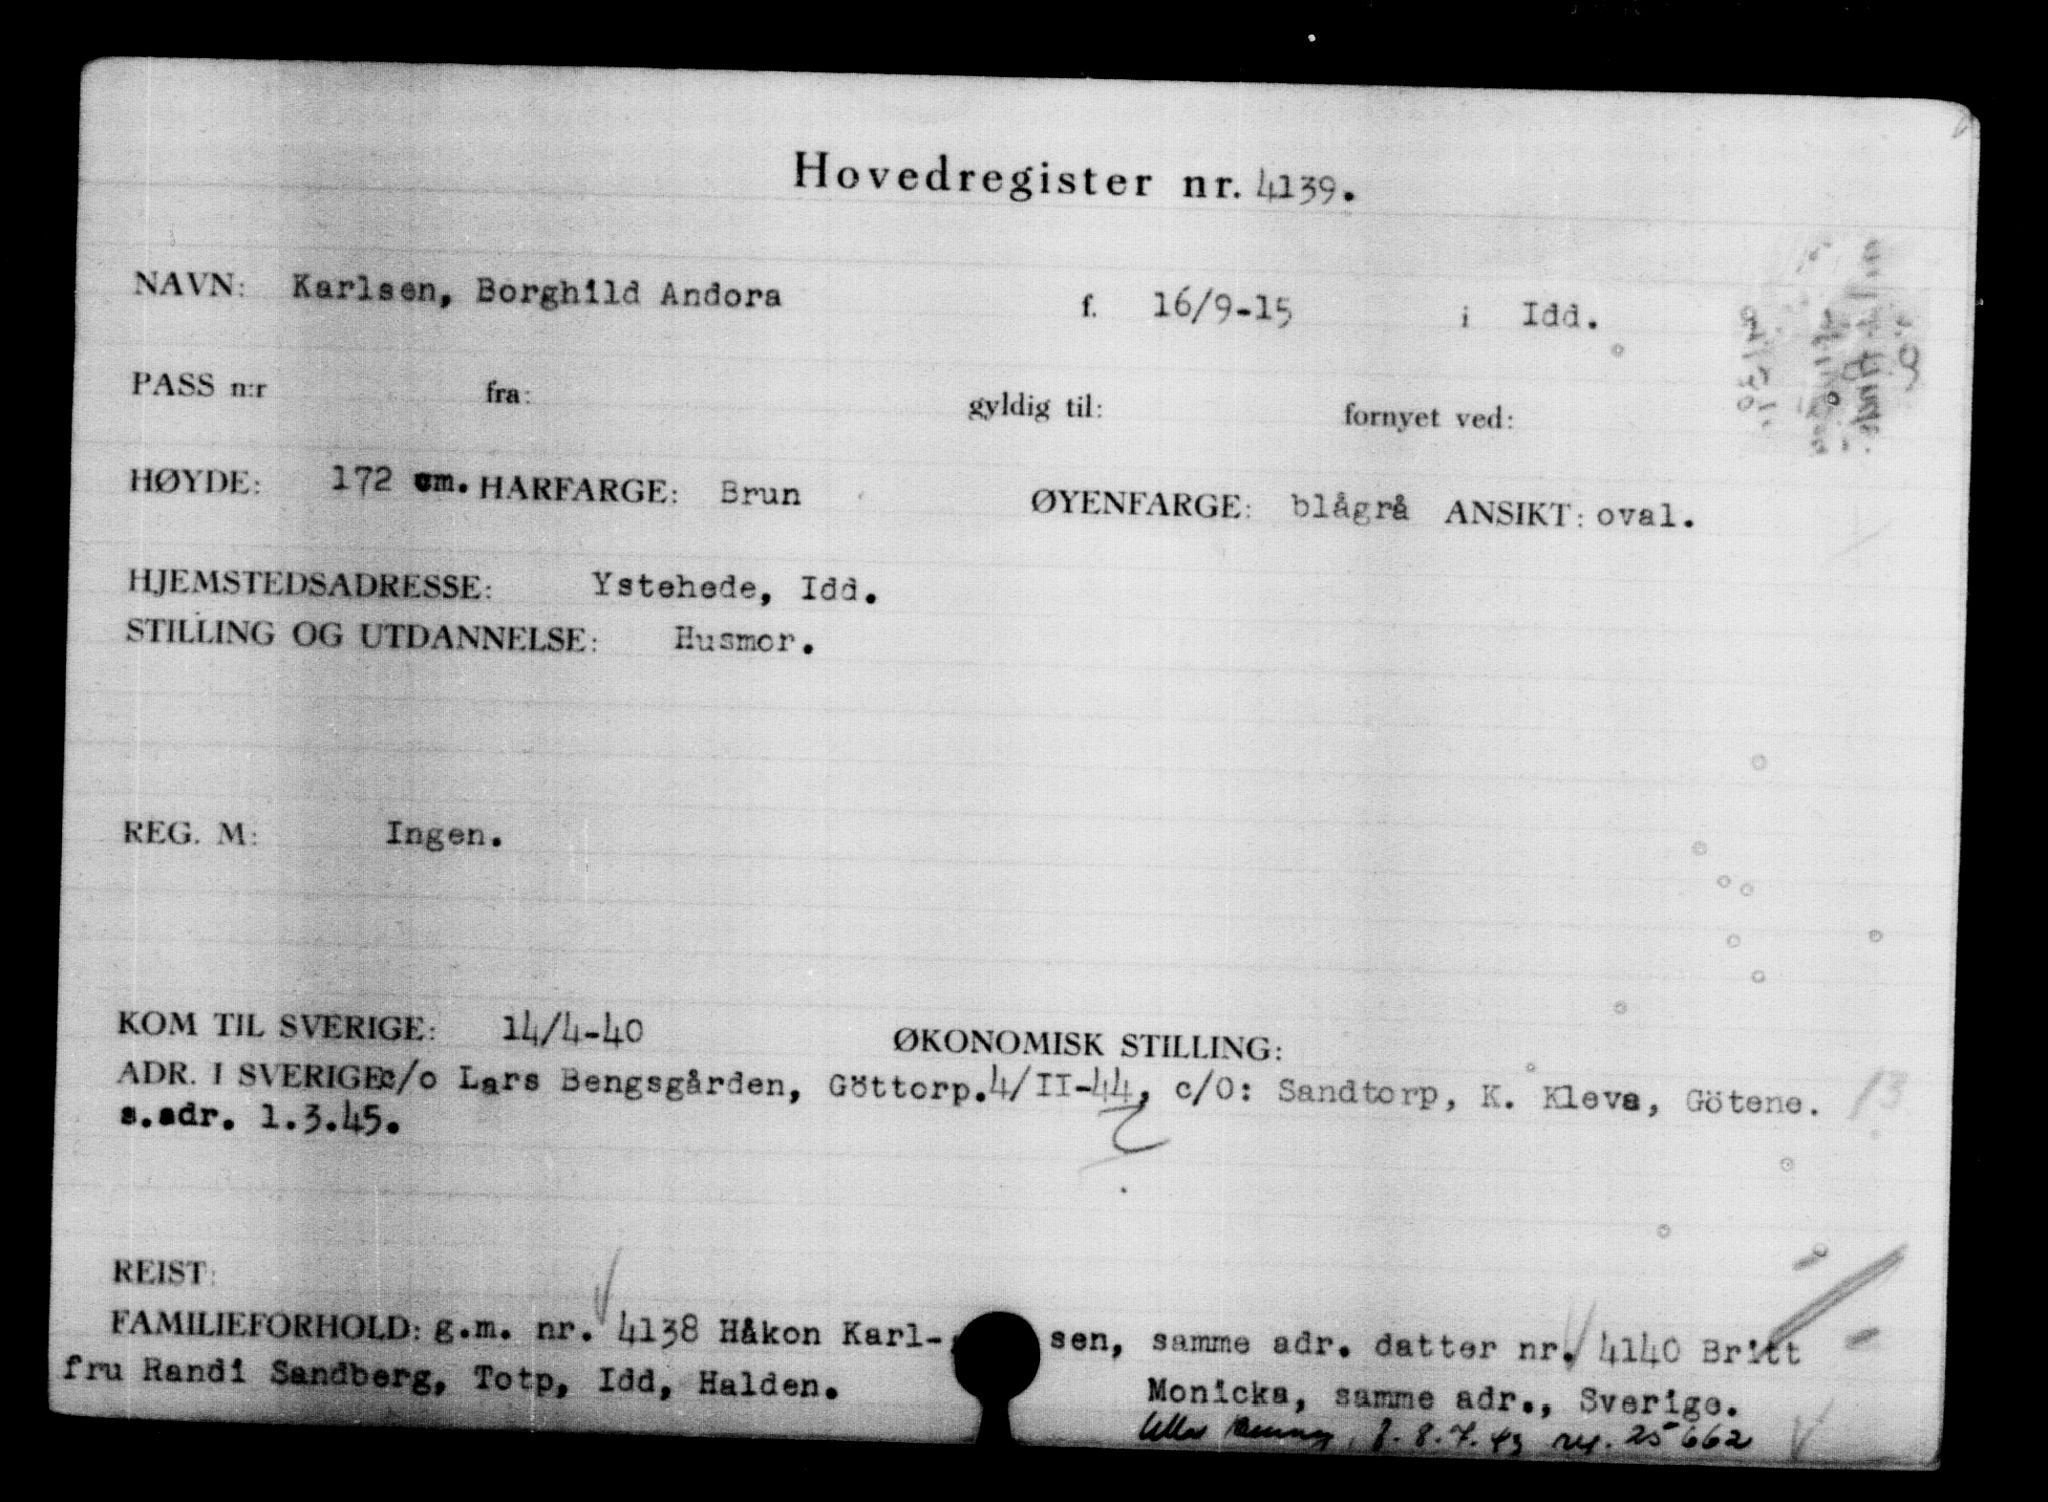 Hovedregister nr. 4139.
NAVN: Karlsen, Borghild Andora f. 16/9-15 i Idd.
PASS n:r fra: gyldig til: fornyet ved:
HØYDE: 172 cm. HARFARGE: Brun ØYENFARGE: blågrå ANSIKT: oval.
HJEMSTEDSADRESSE: Ystehede, Idd.
STILLING OG UTDANNELSE: Husmor.
REG. M: Ingen.
KOM TIL SVERIGE: 14/4-40 ØKONOMISK STILLING:
ADR. I SVERIGE c/o Lars Bengsgården, Göttorp. 4/II-44, c/O: Sandtorp, K. Kleva, Götene. 13
s.adr. 1.3.45.
REIST:
FAMILIEFORHOLD: g.m. nr. 4138 Håkon Karl- sen, samme adr. datter nr. 4140 Britt
fru Randi Sandberg, Totp, Idd, Halden. Monicka, samme adr., Sverige.
f. 8.7.43 reg. 25662